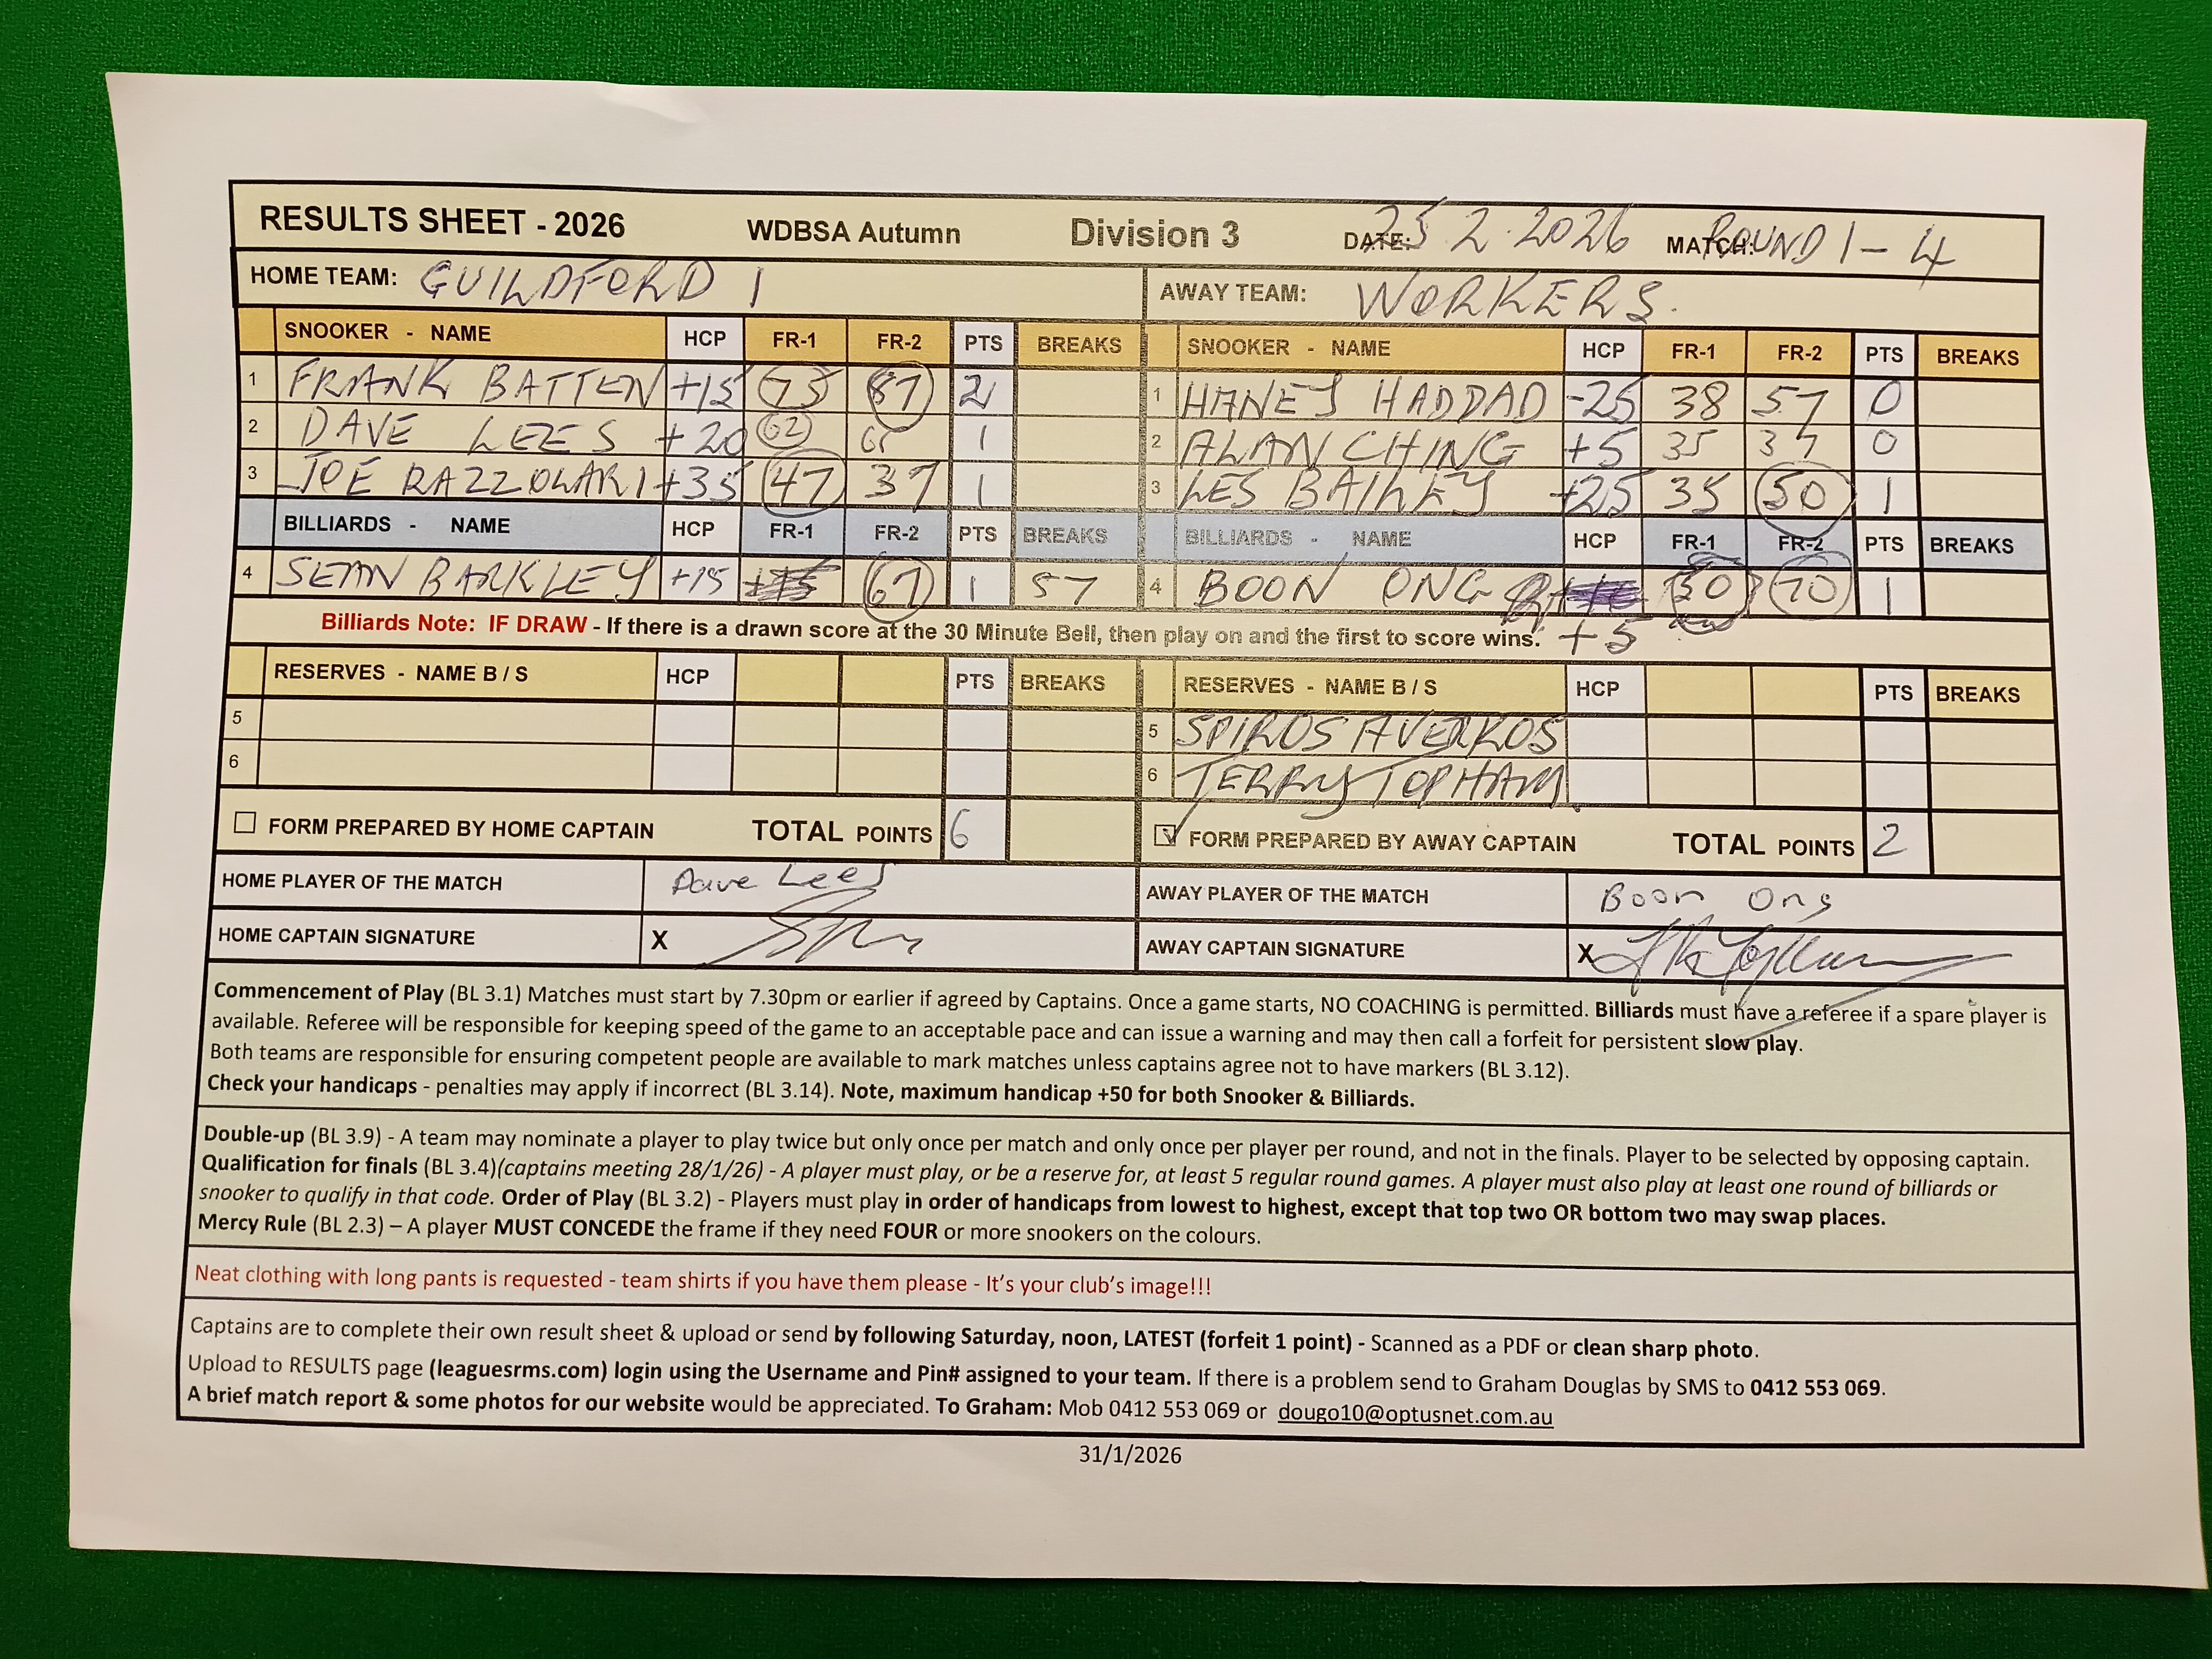 RESULTS SHEET - 2026 WDBSA Autumn Division 3 DATE: 25.2.2026 MATCH: ROUND 1-4
HOME TEAM: GUILDFORD 1 AWAY TEAM: WORKERS.
SNOOKER - NAME HCP FR-1 FR-2 PTS BREAKS SNOOKER - NAME HCP FR-1 FR-2 PTS BREAKS
1 FRANK BATTEN +15 73 87 2 1 HANEY HADDAD -25 38 57 0
2 DAVE LEES +20 62 1 2 ALAN CHING +5 35 37 0
3 JOE RAZZOLARI +35 47 37 1 3 LES BAILEY +25 35 50 1
BILLIARDS - NAME HCP FR-1 FR-2 PTS BREAKS BILLIARDS - NAME HCP FR-1 FR-2 PTS BREAKS
4 SEAN BARKLEY +15 67 1 57 4 BOON ONG 70 1
Billiards Note: IF DRAW - If there is a drawn score at the 30 Minute Bell, then play on and the first to score wins. +5
RESERVES - NAME B / S HCP PTS BREAKS RESERVES - NAME B / S HCP PTS BREAKS
5 5 SPIROS AVERKOS
6 6 TERRY TOPHAM
FORM PREPARED BY HOME CAPTAIN TOTAL POINTS 6 FORM PREPARED BY AWAY CAPTAIN TOTAL POINTS 2
HOME PLAYER OF THE MATCH Dave Lees AWAY PLAYER OF THE MATCH Boon Ong
HOME CAPTAIN SIGNATURE X AWAY CAPTAIN SIGNATURE X
Commencement of Play (BL 3.1) Matches must start by 7.30pm or earlier if agreed by Captains. Once a game starts, NO COACHING is permitted. Billiards must have a referee if a spare player is
available. Referee will be responsible for keeping speed of the game to an acceptable pace and can issue a warning and may then call a forfeit for persistent slow play.
Both teams are responsible for ensuring competent people are available to mark matches unless captains agree not to have markers (BL 3.12).
Check your handicaps - penalties may apply if incorrect (BL 3.14). Note, maximum handicap +50 for both Snooker & Billiards.
Double-up (BL 3.9) - A team may nominate a player to play twice but only once per match and only once per player per round, and not in the finals. Player to be selected by opposing captain.
Qualification for finals (BL 3.4)(captains meeting 28/1/26) - A player must play, or be a reserve for, at least 5 regular round games. A player must also play at least one round of billiards or
snooker to qualify in that code. Order of Play (BL 3.2) - Players must play in order of handicaps from lowest to highest, except that top two OR bottom two may swap places.
Mercy Rule (BL 2.3) – A player MUST CONCEDE the frame if they need FOUR or more snookers on the colours.
Neat clothing with long pants is requested - team shirts if you have them please - It's your club's image!!!
Captains are to complete their own result sheet & upload or send by following Saturday, noon, LATEST (forfeit 1 point) - Scanned as a PDF or clean sharp photo.
Upload to RESULTS page (leaguesrms.com) login using the Username and Pin# assigned to your team. If there is a problem send to Graham Douglas by SMS to 0412 553 069.
A brief match report & some photos for our website would be appreciated. To Graham: Mob 0412 553 069 or dougo10@optusnet.com.au
31/1/2026